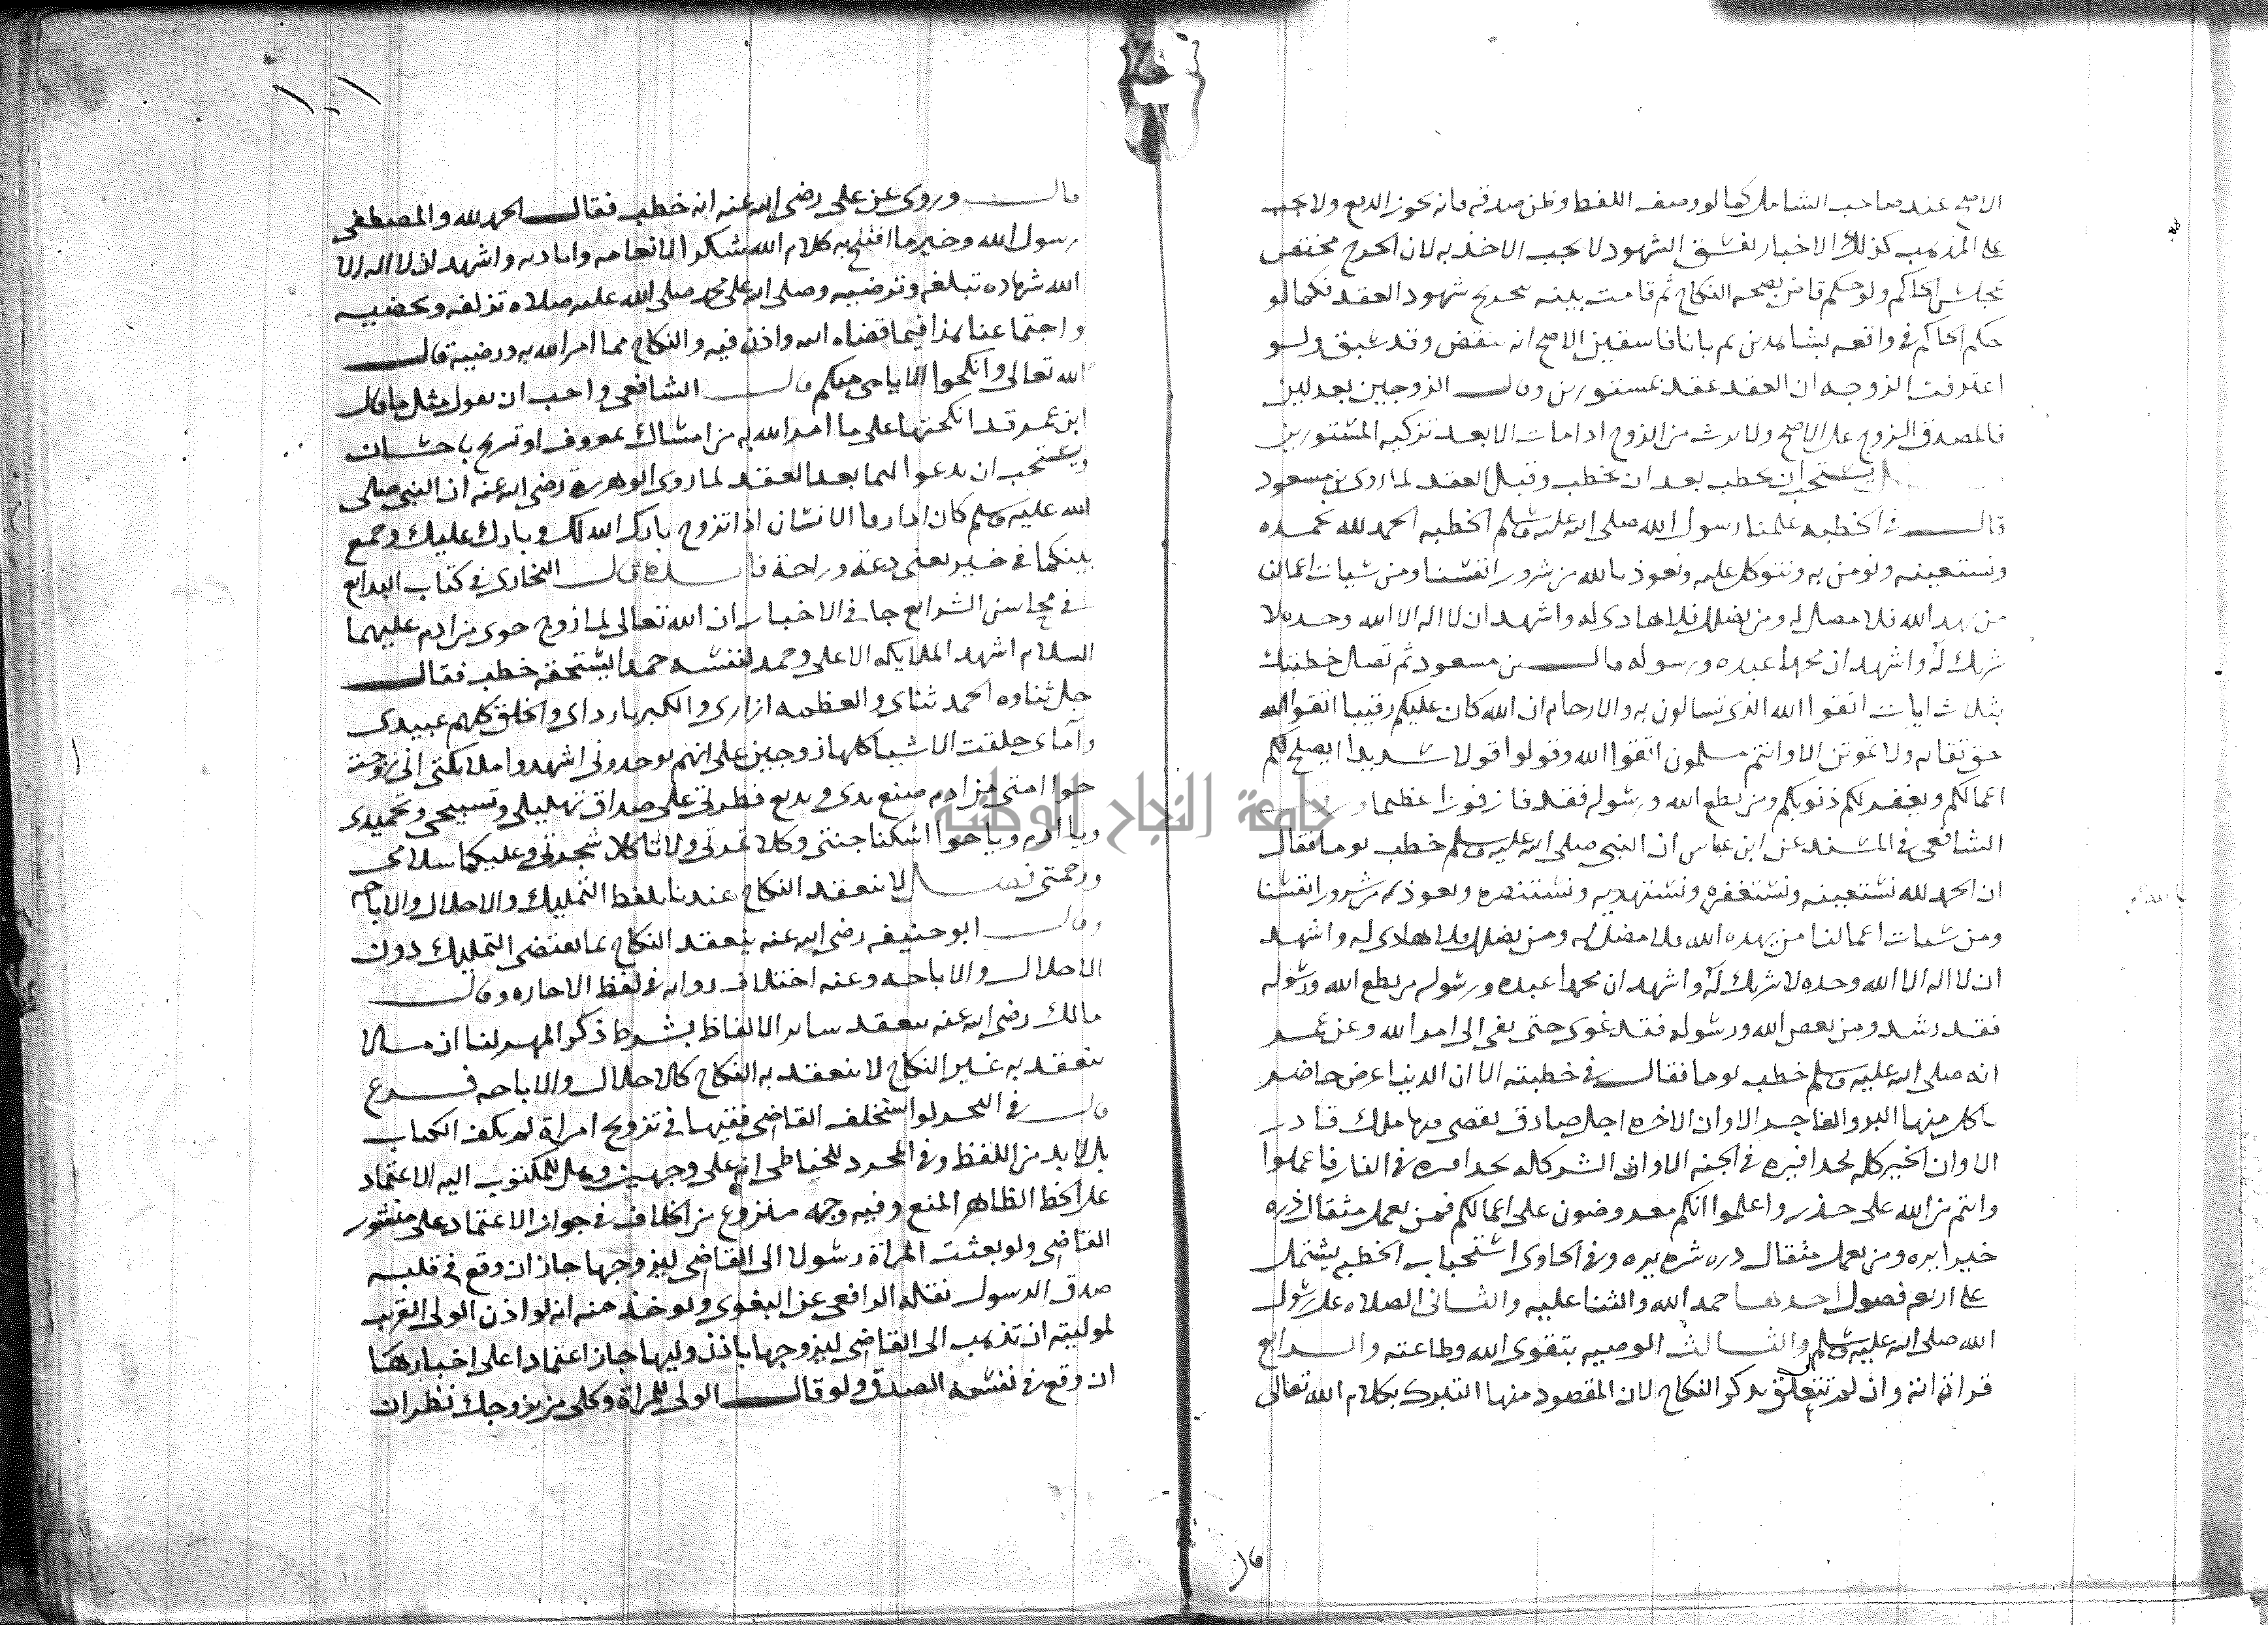 الاصح عند صاحب الشامل كما لو وصف اللفظ وظن صدقه فانه يجوز الدفع ولا يجب
على المذهب كذلك الاخبار بفسق الشهود لا يجب الاخذ به لان الجرح مختص
بمجلس الحاكم ولو حكم قاض بصحه النكاح ثم قامت بينه بجرح شهود العقد فكما لو
حكم الحاكم في واقعه بشاهدين ثم بانا فاسقين الاصح انه ينقض وقد سبق ولو
اعترفت الزوجه ان العقد عقد بمستورين وقال الزوج بعدلين
فالمصدق الزوج على الاصح ولا يرث من الزوج اذا مات الا بعد تزكيه المستورين
يستحب ان يخطب بعد ان يخطب وقبل العقد لما روى بن مسعود
قال في الخطبه علمنا رسول الله صلى الله عليه وسلم الخطبه الحمد لله نحمده
ونستعينه ونومن به ونتوكل عليه ونعوذ بالله من شرور انفسنا ومن سيات اعمالنا
من يهد الله فلا مضل له ومن يضلل فلا هادى له واشهد ان لا اله الا الله وحده لا
شريك له واشهد ان محمدا عبده ورسوله قال بن مسعود ثم تصل خطبتك
بثلاث ايات اتقوا الله الذى تسالون به والارحام ان الله كان عليكم رقيبا اتقوا الله
حق تقاته ولا تموتن الا وانتم مسلمون اتقوا الله وقولوا قولا سديدا يصلح لكم
اعمالكم ويغفر لكم ذنوبكم ومن يطع الله ورسوله فقد فاز فوزا عظيما
الشافعى في المسند عن ابن عباس ان النبى صلى الله عليه وسلم خطب يوما فقال
ان الحمد لله نستعينه ونستغفره ونستهديه ونستنصره ونعوذ به من شرور انفسنا
ومن سيات اعمالنا من يهده الله فلا مضل له ومن يضلل فلا هادى له واشهد
ان لا اله الا الله وحده لا شريك له واشهد ان محمدا عبده ورسوله من يطع الله ورسوله
فقد رشد ومن يعص الله ورسوله فقد غوى حتى يفى الى امر الله وعن عمر
انه صلى الله عليه وسلم خطب يوما فقال في خطبته الا ان الدنيا عرض حاضر
ياكل منها البر والفاجر الا وان الاخره اجل صادق يقضى فيها ملك قادر
الا وان الخير كله بحدافيره في الجنه الا وان الشر كله بحدافيره في النار فاعملوا
وانتم من الله على حذر واعلموا انكم معروضون على اعمالكم فمن يعمل مثقال ذره
خيرا يره ومن يعمل مثقال دره شره يره وفي الحاوى استحباب الخطبه يشتمل
على اربع فصول احدها حمد الله والثنا عليه والثانى الصلاه على رسول
الله صلى الله عليه وسلم والثالث الوصيه بتقوى الله وطاعته والرابع
قراة اية وان لم تتعلق بدكر النكاح لان المقصود منها التبرك بكلام الله تعالى
قال
١٠١
قال وروى عن على رضى الله عنه انه خطب فقال الحمد لله والمصطفى
رسول الله وخير ما افتتح به كلام الله شكرا لانعامه واياديه واشهد ان لا اله الا
الله شهاده تبلغه وترضيه وصلى الله على محمد صلى الله عليه صلاه تزلفه وتحضيه
واجتماعنا هذا فيما قضاه الله واذن فيه والنكاح مما امر الله به ورضيه قال
الله تعالى وانكحوا الايامى منكم قال الشافعى واحب ان يقول مثل ما قال
ابن عمر قد انكحتها على ما امر الله به من امساك بمعروف او تسريح باحسان
ويستحب ان يدعوا لهما بعد العقد لما روى ابو هريرة رضى الله عنه ان النبى صلى
الله عليه وسلم كان اذا رفا الانسان اذا تزوج بارك الله لك وبارك عليك وجمع
بينكما في خير يعنى دعة وراحة قال البخارى في كتاب البدايع
في محاسن الشرايع جا في الاخبار ان الله تعالى لما زوج حوى من ادم عليهما
السلام اشهد الملايكه الاعلى وحمد لنفسه حمدا يستحقه خطب فقال
جل ثناوه الحمد ثناى والعظمه ازارى والكبريا رداى والخلق كلهم عبيدى
وآماى خلقت الاشيا كلها زوجين على انهم يوحدونى اشهدوا ملايكتى انى زوجت
حوا امتى من ادم صنع يدى وبديع فطرتى على صداق تهليلى وتسبيحى وتحميدى
ويا ادم ويا حوا اسكنا جنتى وكلا ثمرتى ولا تاكلا شجرتى وعليكما سلامى
ورحمتى فصل لا ينعقد النكاح عندنا بلفظ التمليك والاحلال والاباحه
وقال ابو حنيفه رضى الله عنه ينعقد النكاح بما يقتضى التمليك دون
الاحلال والاباحه وعنه اختلاف روايه في لفظ الاجاره وقال
مالك رضى الله عنه ينعقد بساير الالفاظ بشرط ذكر المهر لنا ان ما لا
ينعقد به غير النكاح لا ينعقد به النكاح كالاحلال والاباحه فرع
قال في البحر لو استخلف القاضى فقيها في تزويج امراة لم يكف الكتاب
بل لا بد من اللفظ وفي المجرد للحناطى انه على وجهين وهل للمكتوب اليه الاعتماد
على الخط الظاهر المنع وفيه وجه منزوع من الخلاف في جواز الاعتماد على منشور
القاضى ولو بعثت المراة رسولا الى القاضى ليزوجها جاز ان وقع في قلبه
صدق الرسول نقله الرافعى عن البغوى ويوخذ منه انه لو اذن الولى القريب
لموليته ان تذهب الى القاضى ليزوجها باذن وليها جاز اعتمادا على اخبارها
ان وقع في نفسه الصدق ولو قال الولى للمراة وكلى من يزوجك نظر ان
جامعة النجاح الوطنية